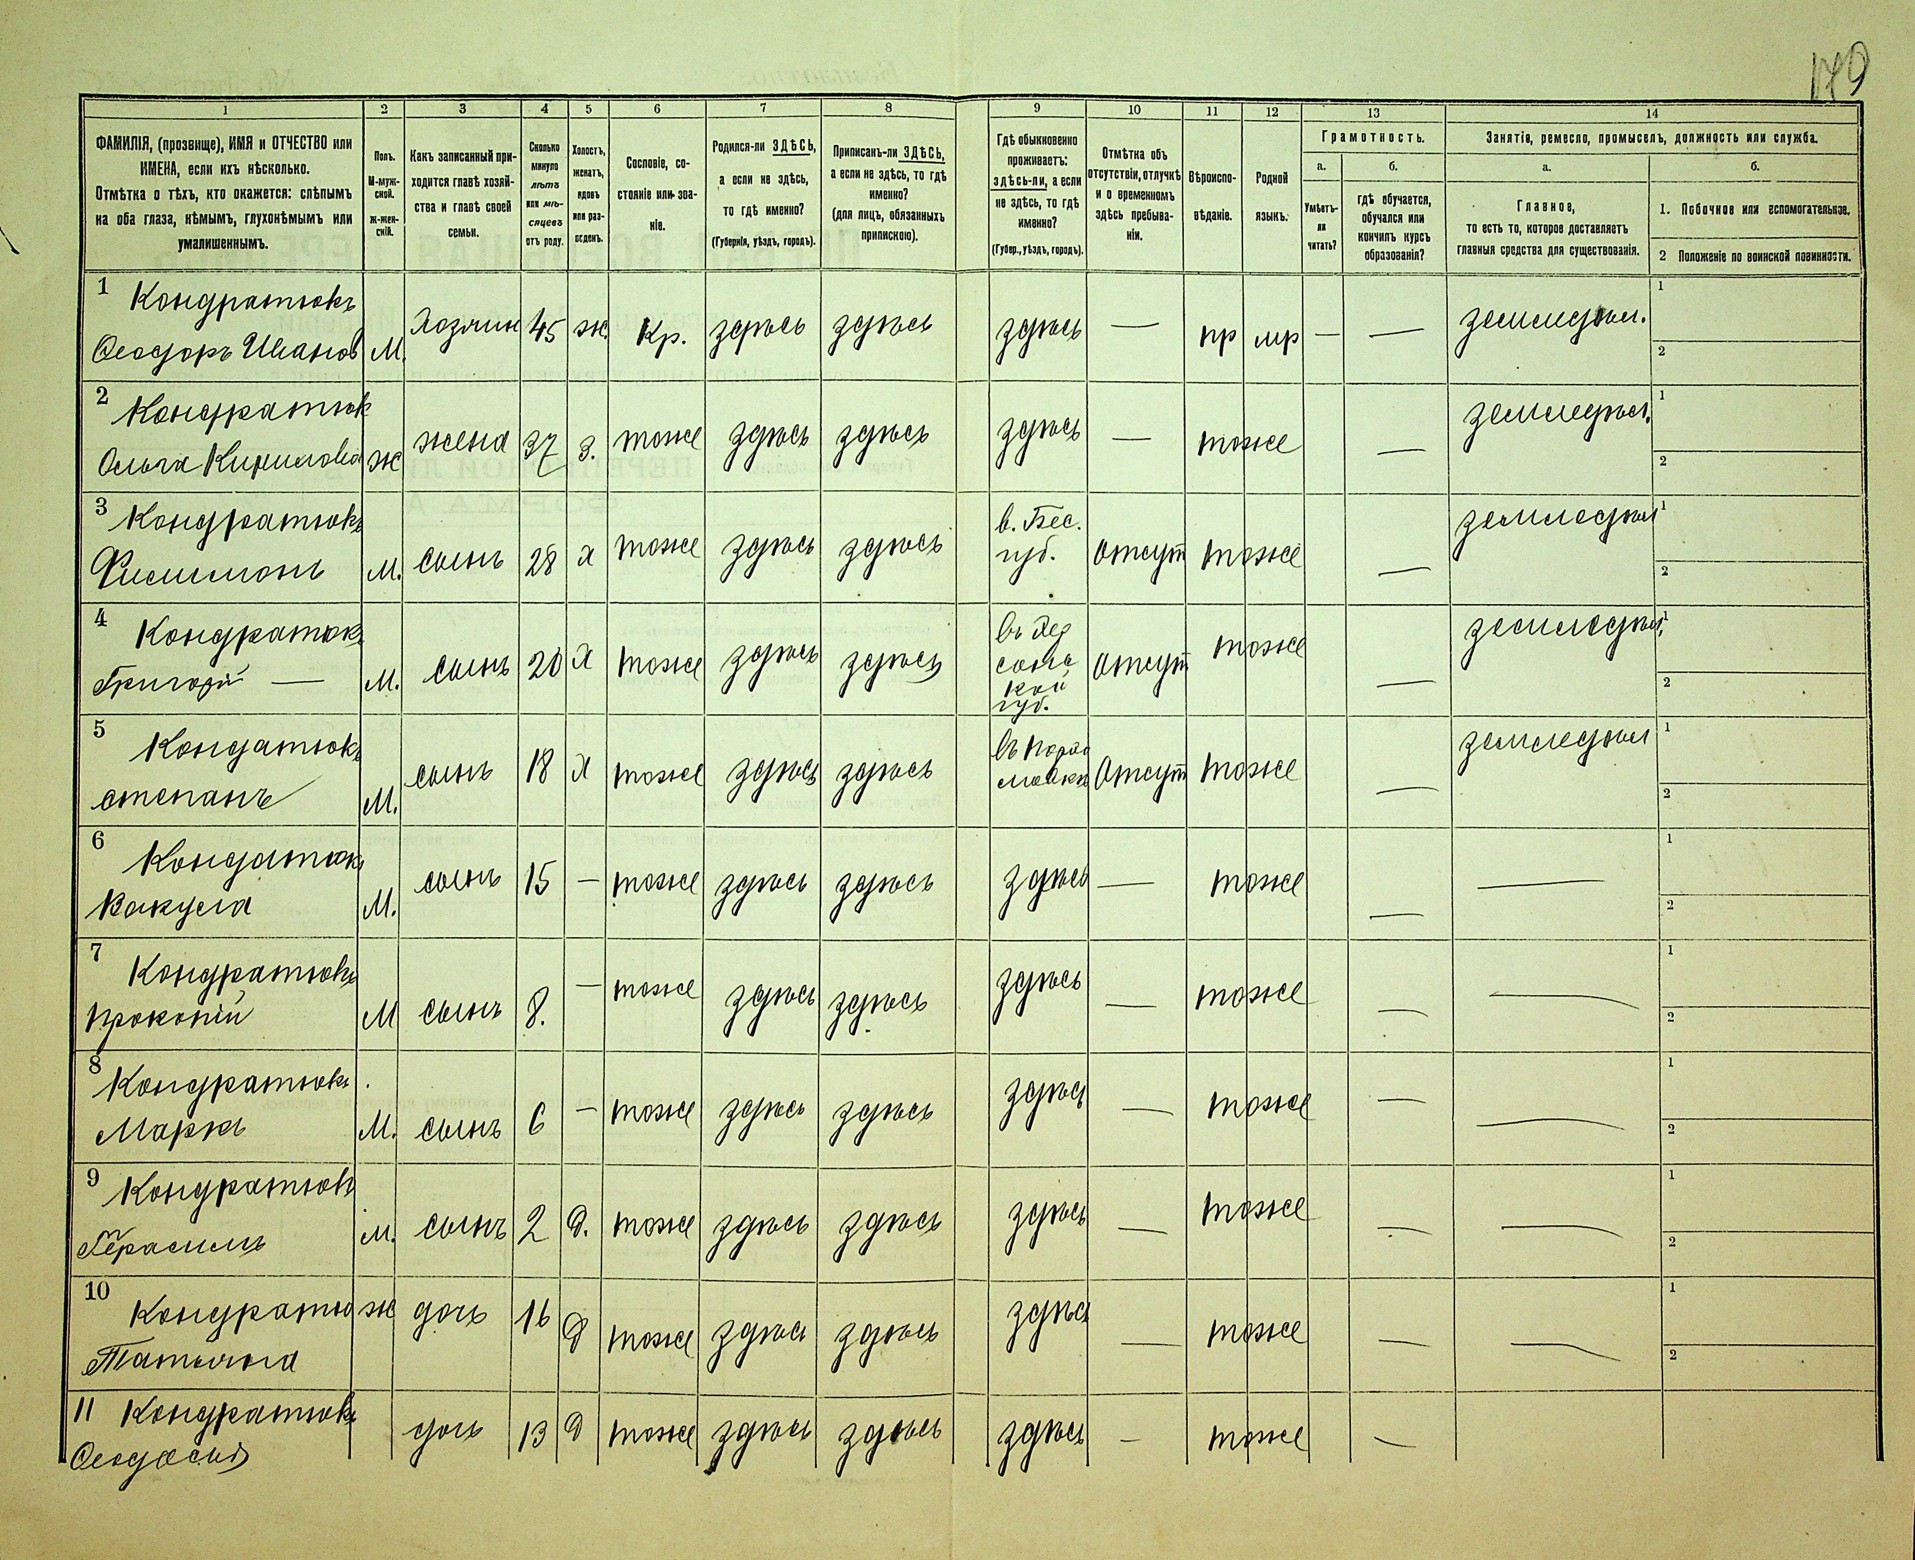 179
1 2 3 4 5 6 7 8 9 10 11 12 13 14
ФАМИЛІЯ, (прозвище), ИМЯ и ОТЧЕСТВО или
ИМЕНА, если ихъ нѣсколько.
Отмѣтка о тѣхъ, кто окажется: слѣпымъ
на оба глаза, нѣмымъ, глухонѣмымъ или
умалишеннымъ.
Полъ.
М-муж-
ской.
ж-жен-
скій.
Какъ записанный при-
ходится главѣ хозяй-
ства и главѣ своей
семьи.
Сколько
минуло
лѣтъ
или мѣ-
сяцевъ
отъ роду.
Холостъ,
женатъ,
вдовъ
или раз-
веденъ.
Сословіе, со-
стояніе или зва-
ніе.
Родился-ли ЗДѢСЬ,
а если не здѣсь,
то гдѣ именно?
(Губернія, уѣздъ, городъ).
Приписанъ-ли ЗДѢСЬ,
а если не здѣсь, то гдѣ
именно?
(для лицъ, обязанныхъ
припискою).
Гдѣ обыкновенно
проживаетъ:
здѣсь-ли, а если
не здѣсь, то гдѣ
именно?
(Губер., уѣздъ, городъ).
Отмѣтка объ
отсутствіи, отлучкѣ
и о временномъ
здѣсь пребыва-
ніи.
Вѣроиспо-
вѣданіе.
Родной
языкъ.
Грамотность.
а.
Умѣетъ-
ли
читать?
б.
гдѣ обучается,
обучался или
кончилъ курсъ
образованія?
Занятія, ремесло, промыселъ, должность или служба.
а.
Главное,
то есть то, которое доставляетъ
главныя средства для существованія.
б.
1. Побочное или вспомогательное.
2 Положеніе по воинской повинности.
1 Кондратюкъ
Ѳеодоръ Иванов М. Хозяин 45 ж. Кр. здѣсь здѣсь здѣсь — пр мр — — земледѣл. 1 2
2 Кондратюк
Ольга Кирилова ж жена 37 з. тоже здѣсь здѣсь здѣсь — тоже — земледѣл. 1 2
3 Кондратюкъ
Филимонъ М. сынъ 28 х тоже здѣсь здѣсь в. Бес.
губ. отсут тоже — земледѣл 1 2
4 Кондратюкъ
Григорій — М. сынъ 20 х тоже здѣсь здѣсь въ Хер
сонс
кой
губ. отсут тоже — земледѣл. 1 2
5 Кондатюкъ
степанъ М. сынъ 18 х тоже здѣсь здѣсь въ
Отсут тоже — земледѣл 1 2
6 Кондатюкъ
Вакула М. сынъ 15 — тоже здѣсь здѣсь здѣсь — тоже — — 1 2
7 Кондратюкъ
прокопій М сынъ 8. — тоже здѣсь здѣсь здѣсь — тоже — — 1 2
8 Кондратюкъ
Марко М. сынъ 6 — тоже здѣсь здѣсь здѣсь — тоже — — 1 2
9 Кондратюк
Герасимъ М. сынъ 2 д. тоже здѣсь здѣсь здѣсь — тоже — — 1 2
10 Кондратю
Татьяна ж дочь 16 д тоже здѣсь здѣсь здѣсь — тоже — — 1 2
11 Кондратюкъ
Ѳеодосія дочь 13 д тоже здѣсь здѣсь здѣсь — тоже —